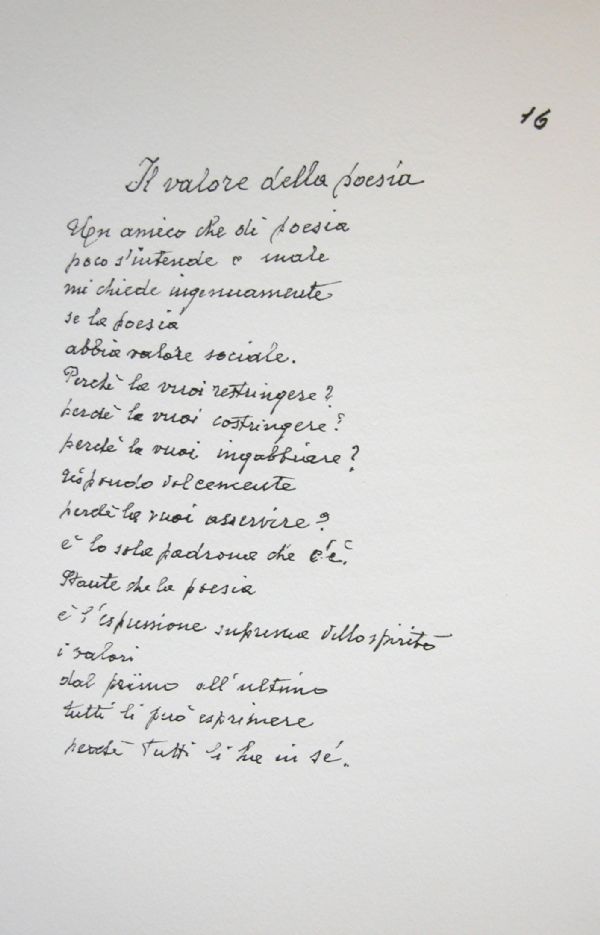 16
Il valore della poesia
Un amico che di poesia
poco s'intende e male
mi chiede ingenuamente
se la poesia
abbia valore sociale.
Perchè la vuoi restringere?
perchè la vuoi costringere?
perchè la vuoi ingabbiare?
rispondo dolcemente
perchè la vuoi asservire?
è la sola padrona che c'è.
Stante che la poesia
è l'espressione suprema dello spirito
i valori
dal primo all'ultimo
tutti li può esprimere
perchè tutti li ha in sé.